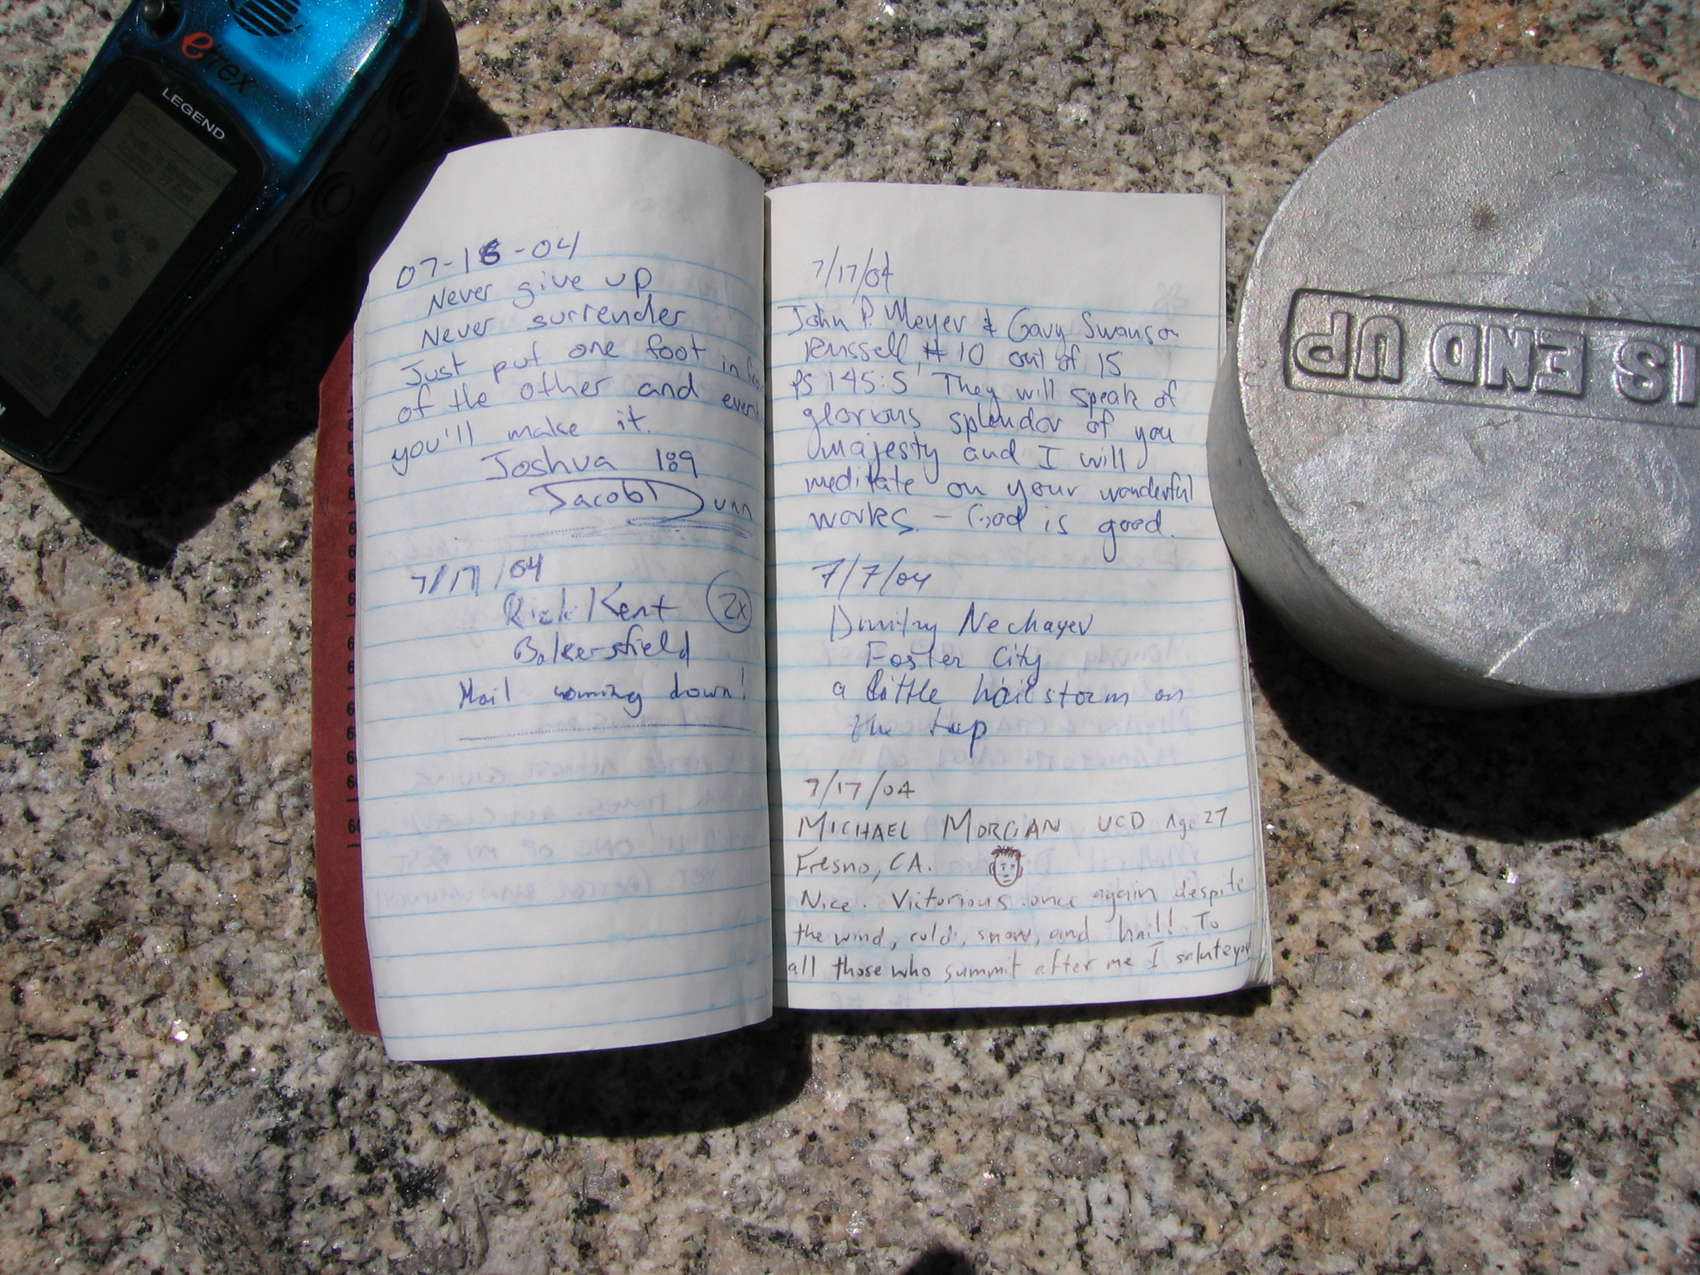 eTrex
LEGEND
07-16-04
Never give up
Never surrender
Just put one foot in
of the other and
you'll make it.
Joshua 1:9
Jacob Dunn
7/17/04
Rick Kent 2x
Bakersfield
Hail coming down!
7/17/04
John P. Meyer & Gary Swanson
Russell #10 out of 15
PS 145:5 They will speak of
glorious splendor of you
majesty and I will
meditate on your wonderful
works - God is good.
7/7/04
Dimitry Nechayev
Foster City
a little hailstorm on
the top
7/17/04
MICHAEL MORGAN UCD Age 27
Fresno, CA.
Nice. Victorious once again despite
the wind, cold, snow, and hail! To
all those who summit after me I salute you
IS END UP